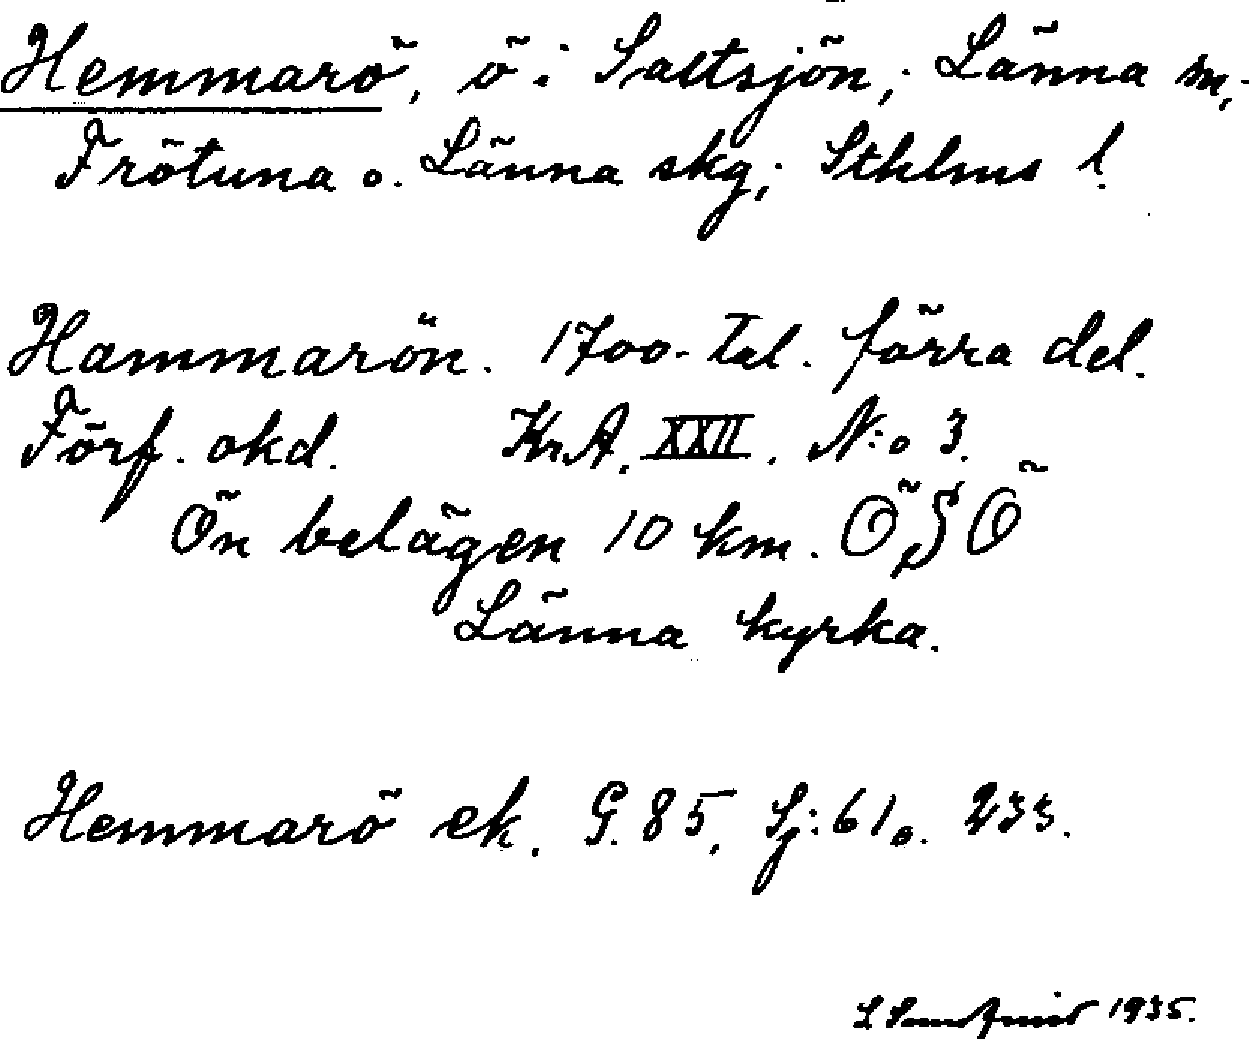 Hemmarö, ö i Saltsjön; Länna sn,
Frötuna o. Länna skg; Sthlms l.
Hammarön. 1700-tal. förra del.
Förf. okd. KrA. XXII. N:o 3.
Ön belägen 10 km. ÖSÖ
Länna kyrka.
Hemmarö ek. G. 85, Sj: 61 o. 233.
1935.